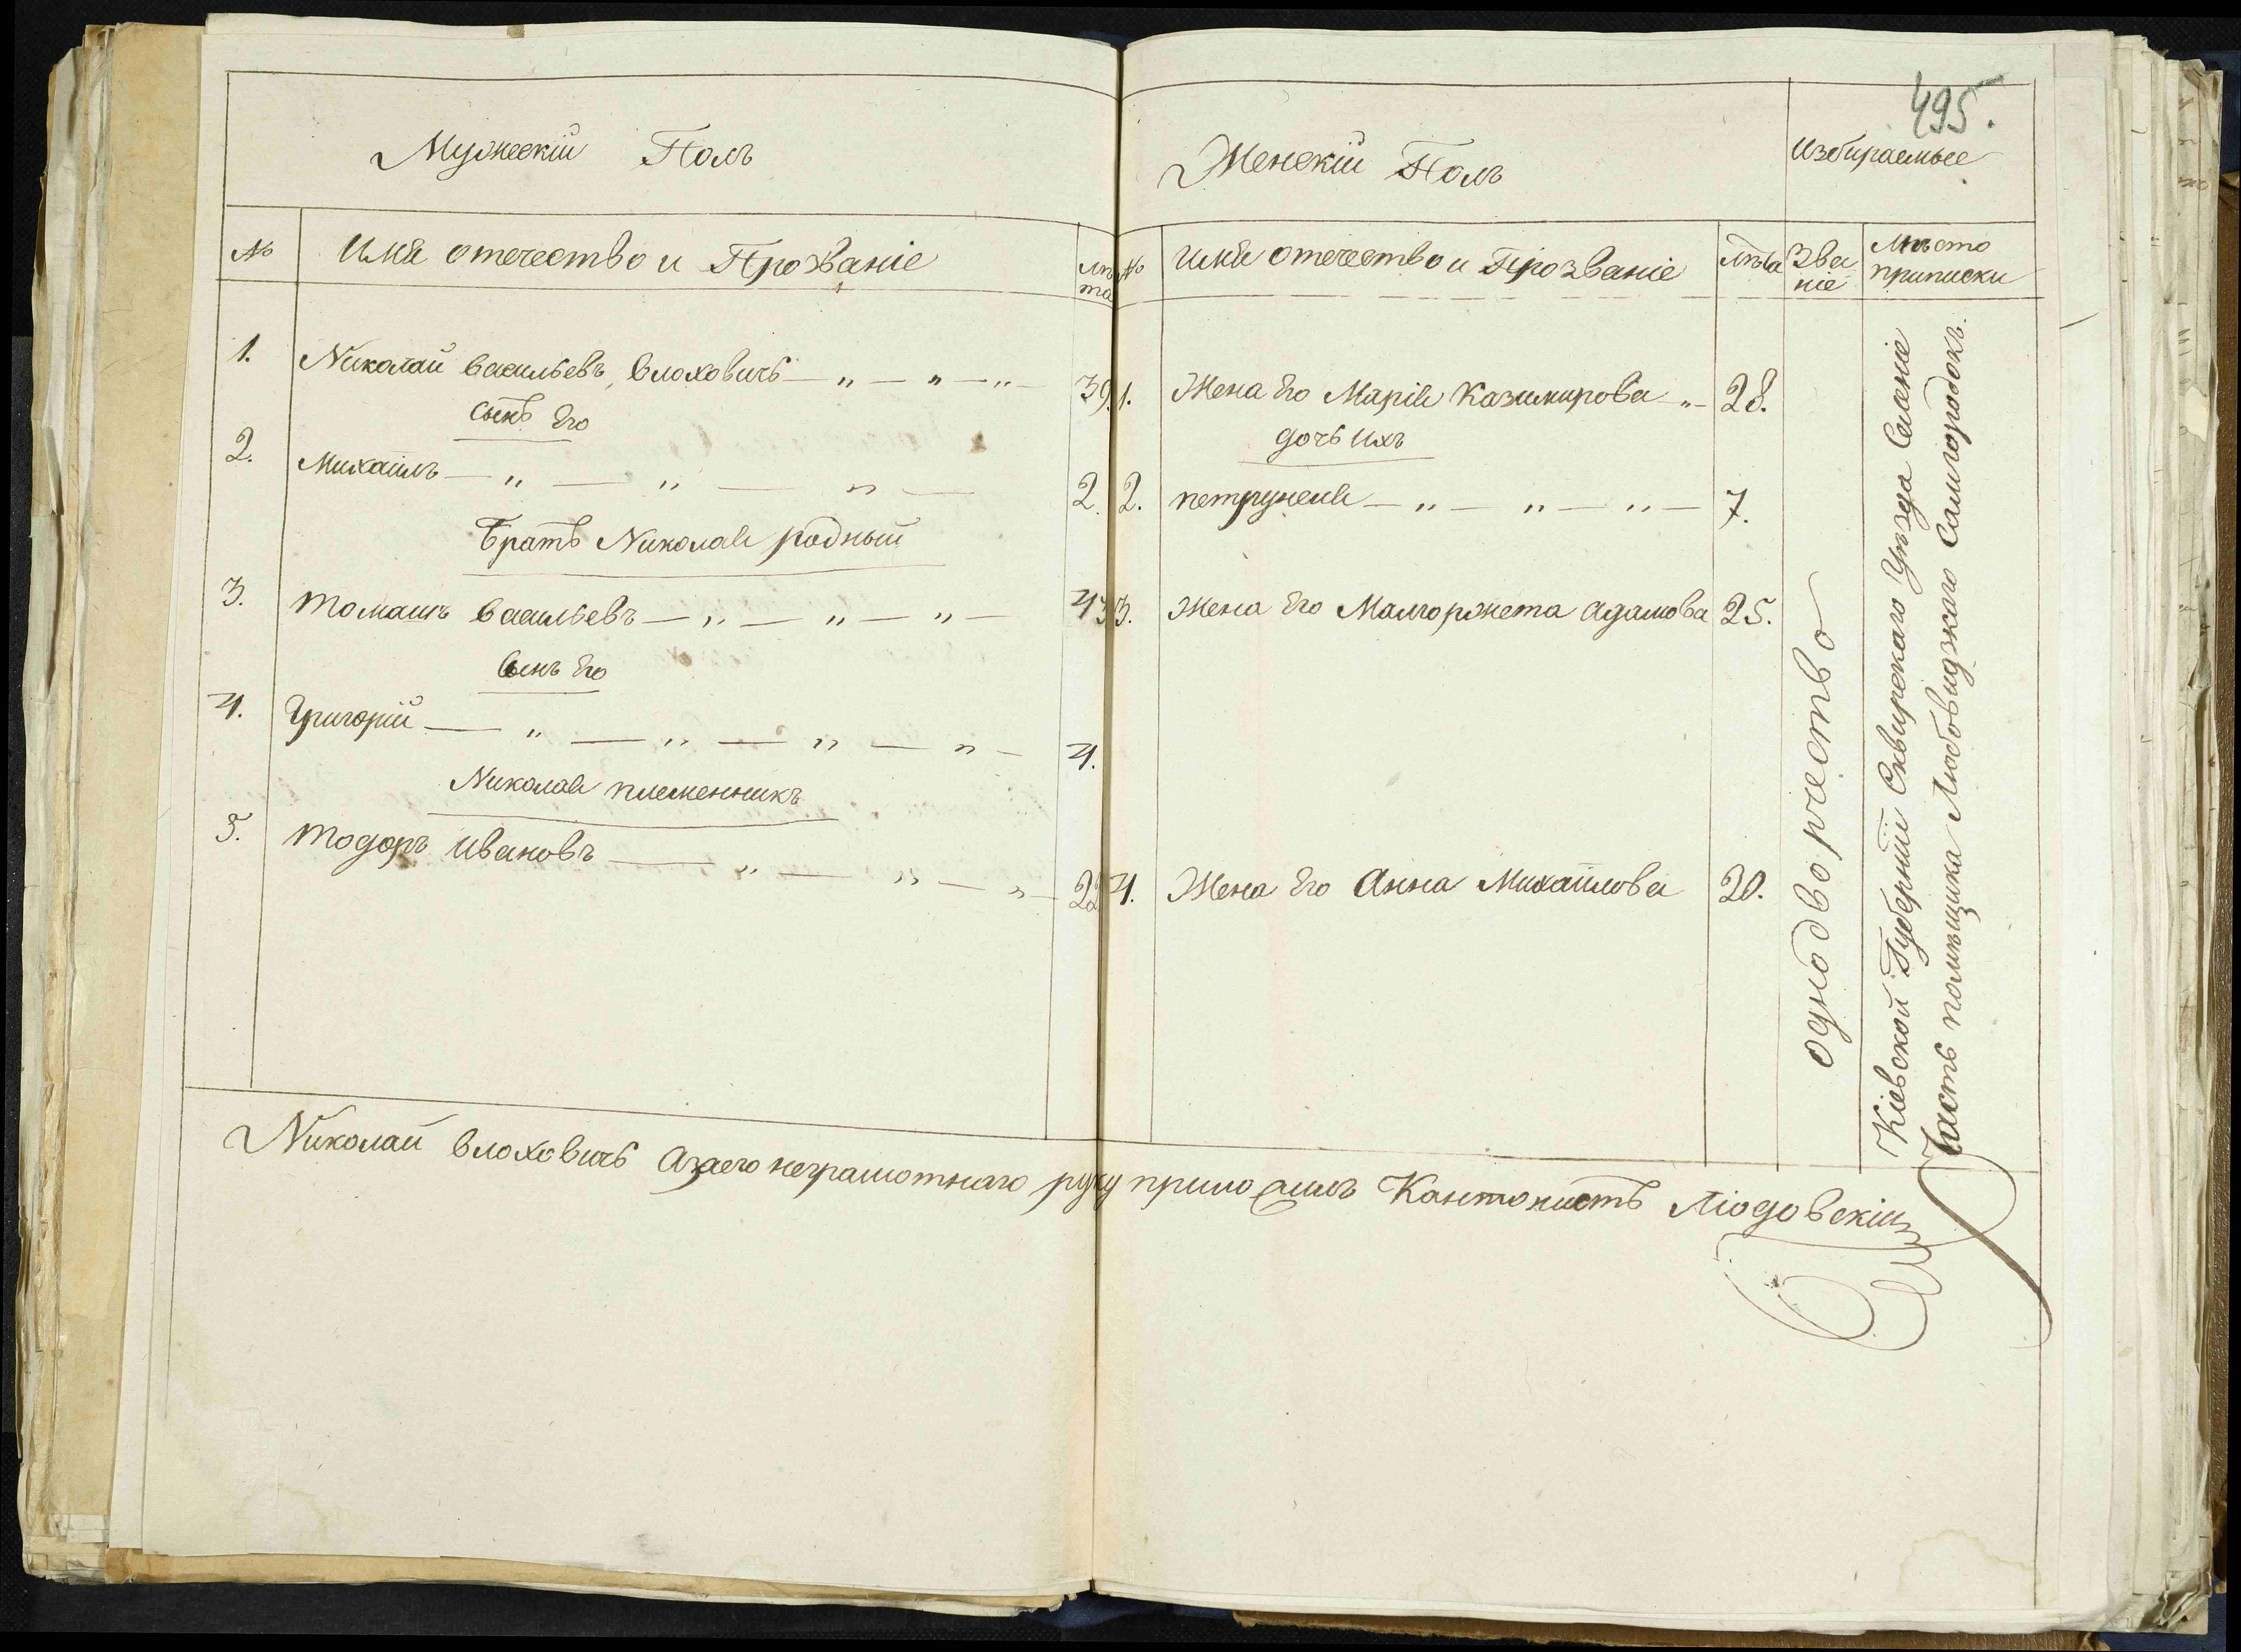 495.
Мужескій Полъ
№ Имя отечество и Прозваніе лѣта
1. Николай Васильевъ, Влоховичъ — „ — „ — „ — 39.
Сынъ Его
2. Михаилъ — „ — „ — „ — 2.
Братъ Николая родный
3. Томашъ Васильевъ — „ — „ — „ — 43
Сынъ Его
4. Григорій — „ — „ — „ — „ — 4.
Николая племенникъ
5. Тодоръ Ивановъ — „ — „ — „ — 22
Женскій Полъ
Избираемые
№ Имя отечество и Прозваніе лѣта Званіе Мѣсто приписки
1. Жена Его Марія Казимирова „ — 28.
дочь ихъ
2. петрунеля — „ — „ — „ — 7.
3. Жена Его Малгоржета Адамова 25.
4. Жена Его Анна Михайлова 20.
однодворчество
Кіевской Губерніи Сквирскаго Уѣзда Селеніе
Часть помѣщика Любовидзкаго Самгородокъ.
Николай Влоховичъ Азаего неграмотнаго руку приложилъ Кантонистъ Людовскій